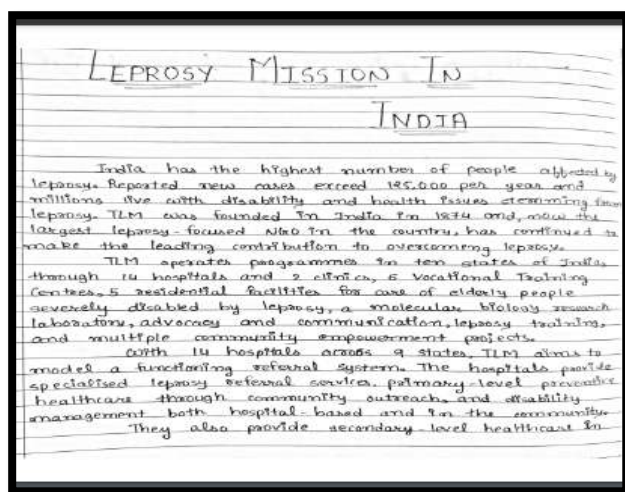 LEPROSY MISSION IN
INDIA
India has the highest number of people affected by
leprosy. Reported new cases exceed 125.000 per year and
millions live with disability and health issues stemming from
leprosy. TLM was founded in India in 1874 and, now the
largest leprosy-focused NGO in the country, has continued to
make the leading contribution to overcoming leprosy.
TLM operates programmes in ten states of India,
through 14 hospitals and 2 clinics, 6 Vocational Training
Centres, 5 residential facilities for care of elderly people
severely disabled by leprosy, a molecular biology research
laboratory, advocacy and communication, leprosy training,
and multiple community empowerment projects.
With 14 hospitals across 9 states, TLM aims to
model a functioning referral system. The hospitals provide
specialised leprosy referral services, primary-level preventive
healthcare through community outreach, and disability
management both hospital-based and in the community.
They also provide secondary-level healthcare in